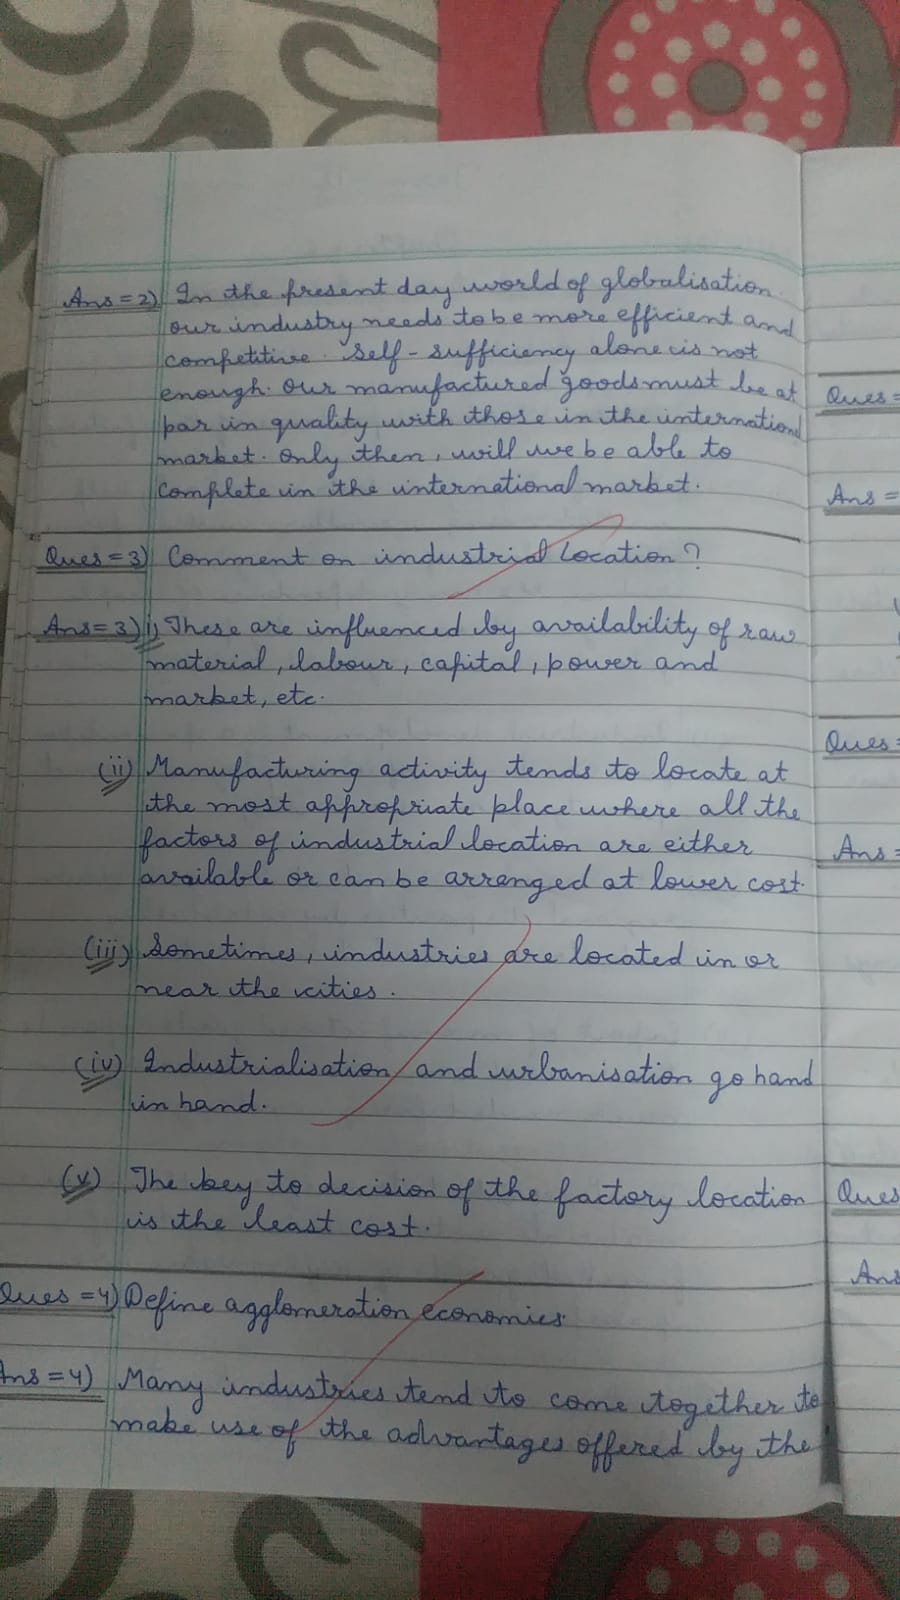 Ans=2) In the present day world of globalisation.
our industry needs to be more efficient and
competitive. Self-sufficiency alone is not
enough. Our manufactured goods must be at
par in quality with those in the international
market. Only then, will we be able to
complete in the international market.
Ques=3) Comment on industrial Location?
Ans=3) i) These are influenced by availability of raw
material, labour, capital, power and
market, etc.
(ii) Manufacturing activity tends to locate at
the most appropriate place where all the
factors of industrial location are either
available or can be arranged at lower cost.
(iii) Sometimes, industries are located in or
near the cities.
(iv) Industrialisation and urbanisation go hand
in hand.
(v) The key to decision of the factory location
is the least cost.
Ques=4) Define agglomeration economies.
Ans=4) Many industries tend to come together to
make use of the advantages offered by the
Ques=
Ans=
Ques=
Ans=
Ques
Ans